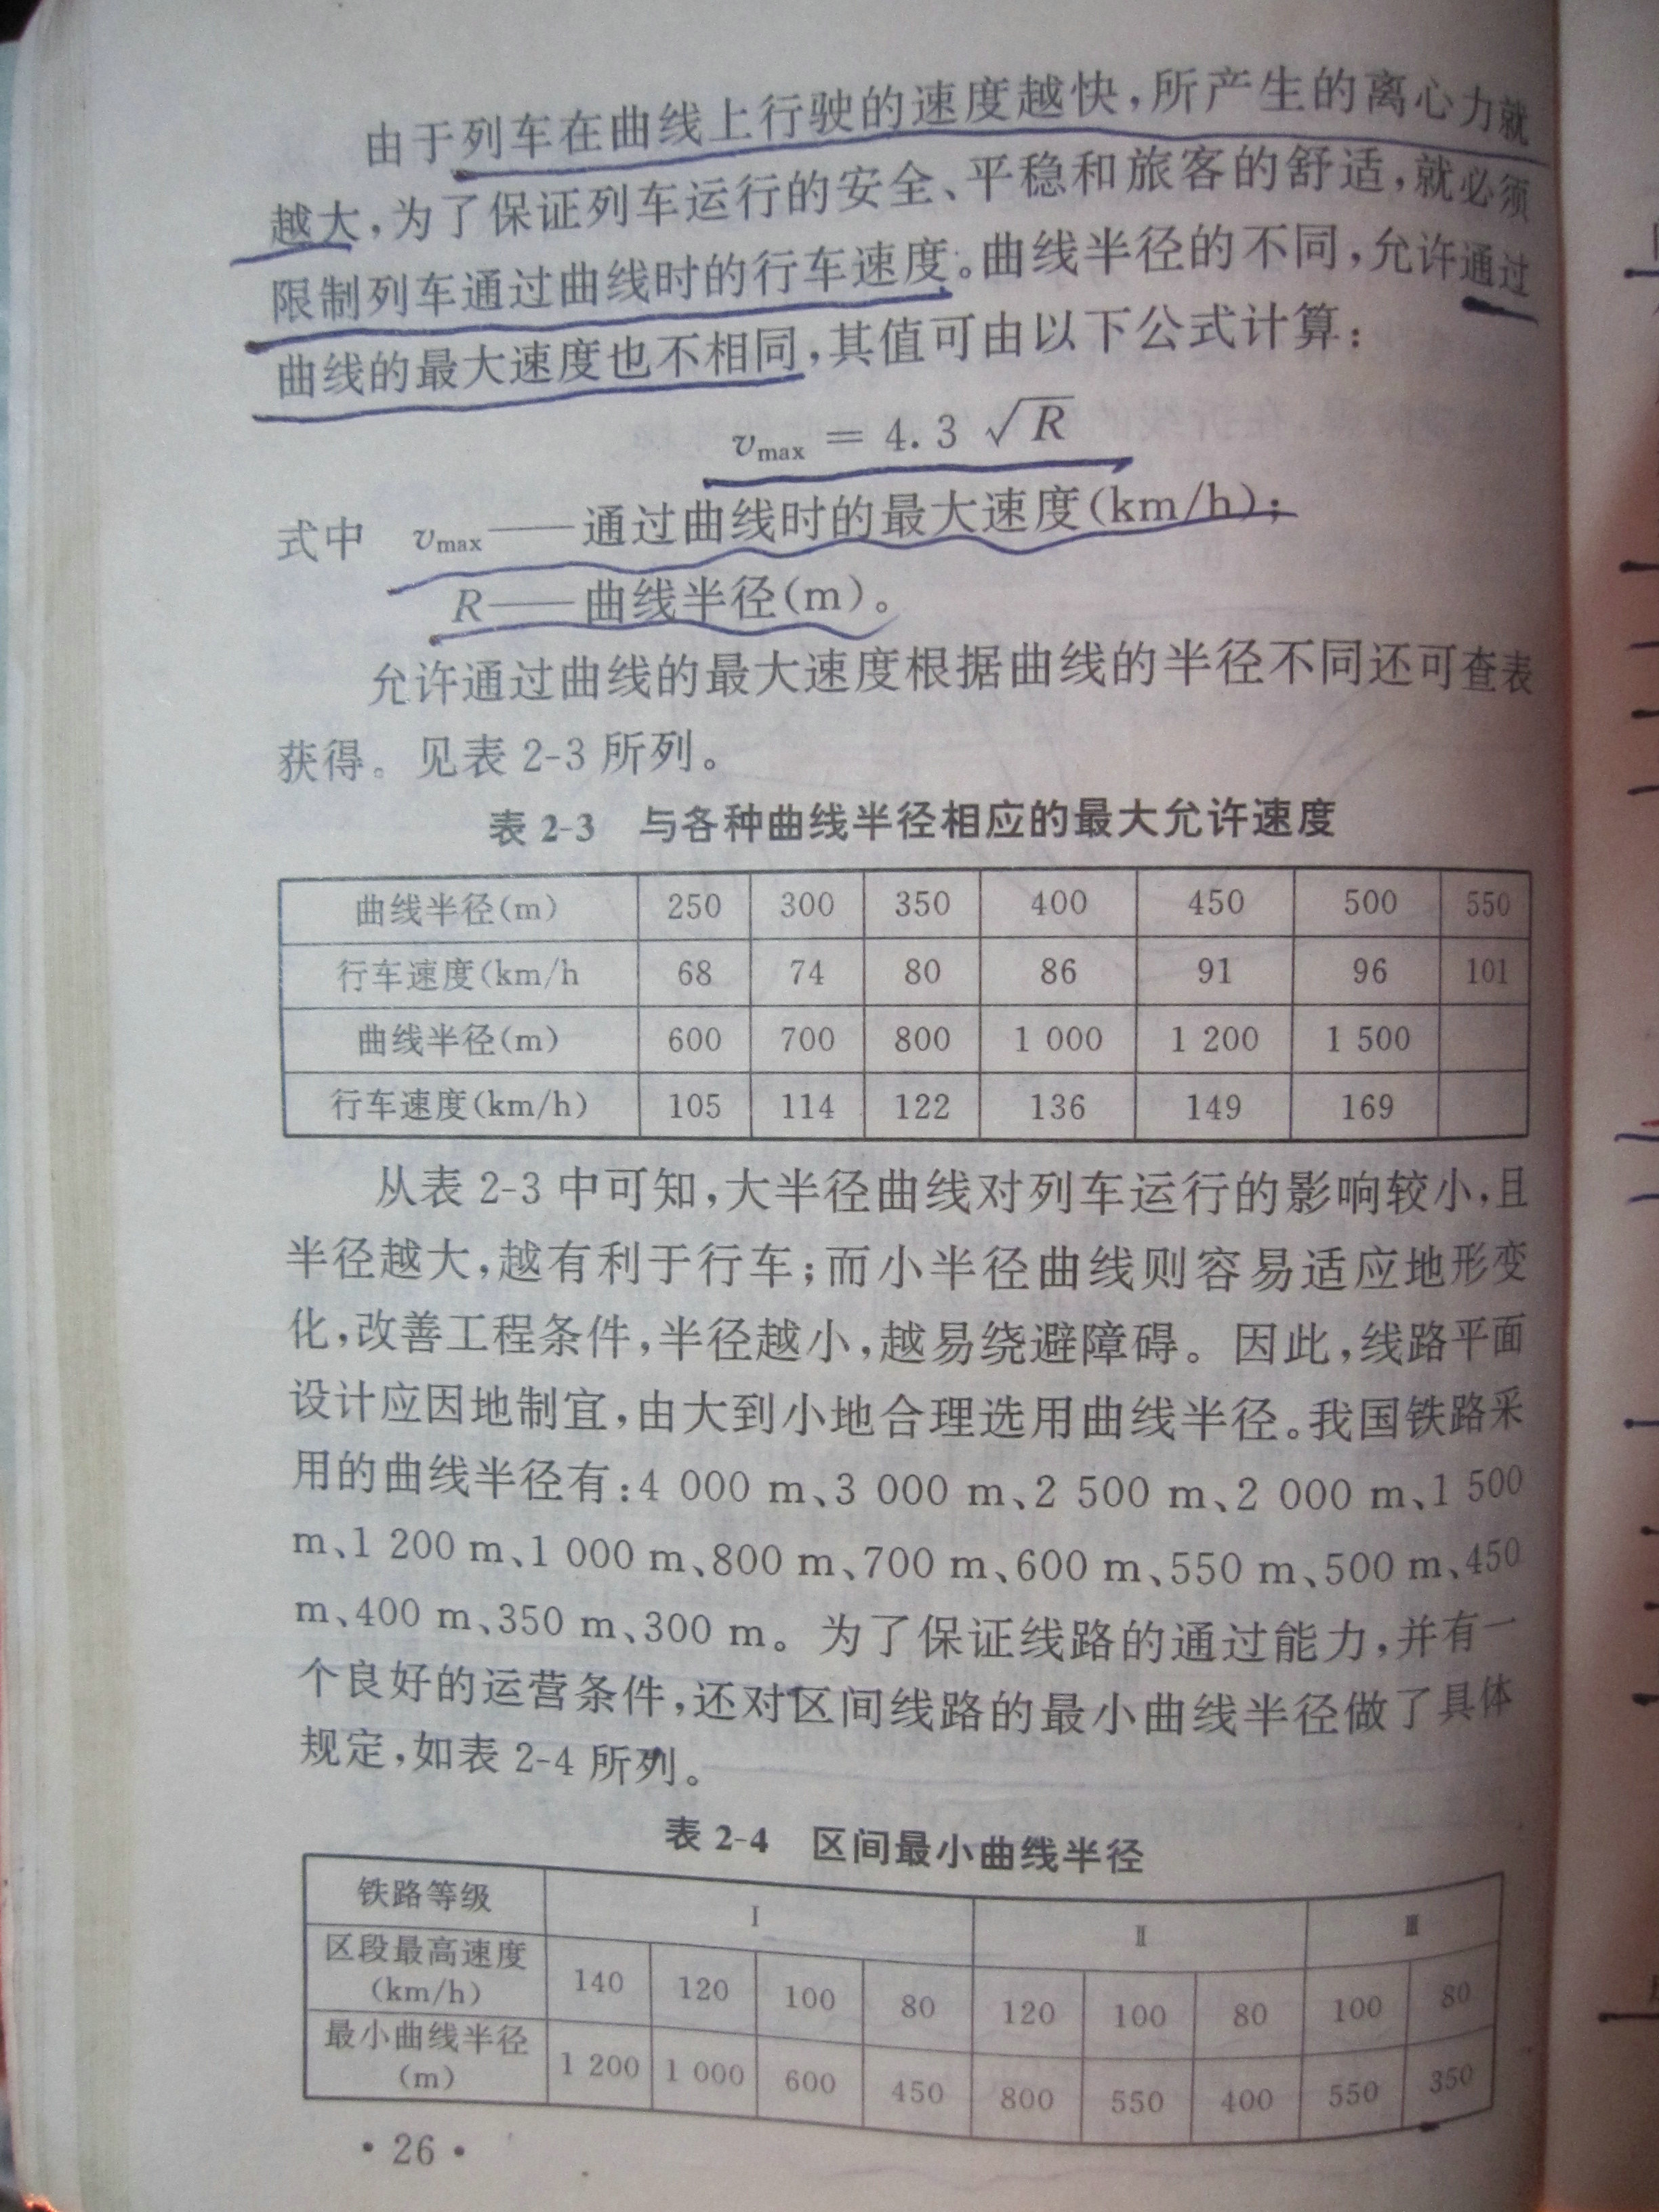 由于列车在曲线上行驶的速度越快，所产生的离心力就
越大，为了保证列车运行的安全、平稳和旅客的舒适，就必须
限制列车通过曲线时的行车速度。曲线半径的不同，允许通过
曲线的最大速度也不相同，其值可由以下公式计算：
vmax = 4.3 √R
式中 vmax——通过曲线时的最大速度(km/h)；
R——曲线半径(m)。
允许通过曲线的最大速度根据曲线的半径不同还可查表
获得。见表 2-3 所列。
表 2-3 与各种曲线半径相应的最大允许速度
曲线半径(m) 250 300 350 400 450 500 550
行车速度(km/h 68 74 80 86 91 96 101
曲线半径(m) 600 700 800 1 000 1 200 1 500
行车速度(km/h) 105 114 122 136 149 169
从表 2-3 中可知，大半径曲线对列车运行的影响较小，且
半径越大，越有利于行车；而小半径曲线则容易适应地形变
化，改善工程条件，半径越小，越易绕避障碍。因此，线路平面
设计应因地制宜，由大到小地合理选用曲线半径。我国铁路采
用的曲线半径有：4 000 m、3 000 m、2 500 m、2 000 m、1 500
m、1 200 m、1 000 m、800 m、700 m、600 m、550 m、500 m、450
m、400 m、350 m、300 m。为了保证线路的通过能力，并有一
个良好的运营条件，还对区间线路的最小曲线半径做了具体
规定，如表 2-4 所列。
表 2-4 区间最小曲线半径
铁路等级 Ⅰ Ⅱ Ⅲ
区段最高速度
(km/h) 140 120 100 80 120 100 80 100 80
最小曲线半径
(m) 1 200 1 000 600 450 800 550 400 550 350
· 26 ·